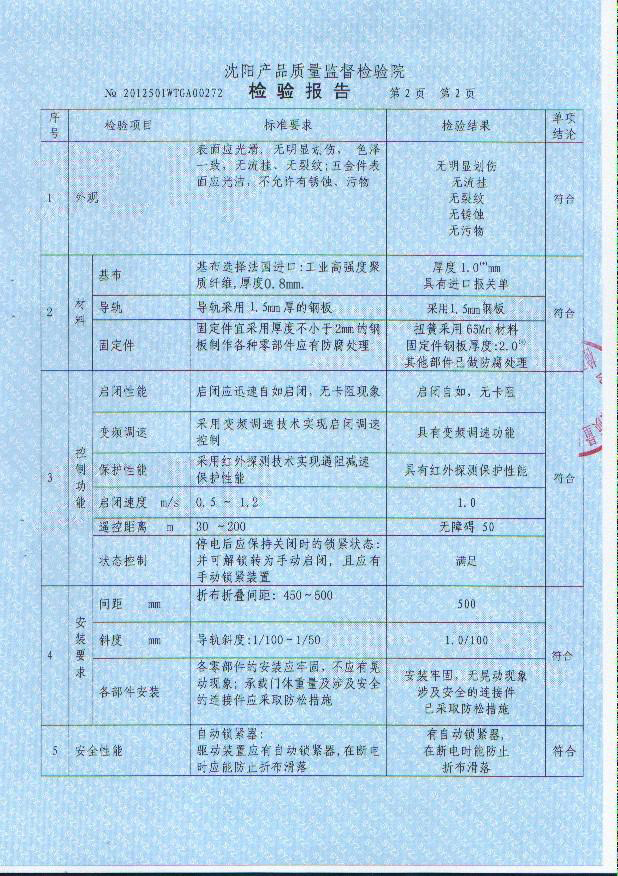 沈阳产品质量监督检验院
№ 2012501WTGA00272 检验报告 第2页 第2页
序号 检验项目 标准要求 检验结果 单项结论
1 外观
表面应光滑，无明显划伤，色泽
一致，无流挂、无裂纹；五金件表
面应光洁，不允许有锈蚀、污物
无明显划伤
无流挂
无裂纹
无锈蚀
无污物
符合
2 材料
基布
基布选择法国进口：工业高强度聚
质纤维，厚度0.8mm.
厚度1.0mm
具有进口报关单
导轨 导轨采用1.5mm厚的钢板 采用1.5mm钢板
固定件
固定件宜采用厚度不小于2mm的钢
板制作各种零部件应有防腐处理
扭簧采用65Mn材料
固定件钢板厚度：2.0
其他部件已做防腐处理
符合
3 控制功能
启闭性能 启闭应迅速自如启闭，无卡阻现象 启闭自如，无卡阻
变频调速
采用变频调速技术实现启闭调速
控制
具有变频调速功能
保护性能
采用红外探测技术实现遇阻减速
保护性能
具有红外探测保护性能
启闭速度 m/s 0.5 ~ 1.2 1.0
遥控距离 m 30 ~200 无障碍 50
状态控制
停电后应保持关闭时的锁紧状态：
并可解锁转为手动启闭，且应有
手动锁紧装置
满足
符合
4 安装要求
间距 mm 折布折叠间距：450~500 500
斜度 mm 导轨斜度：1/100~1/50 1.0/100
各部件安装
各零部件的安装应牢固，不应有晃
动现象；承载门体重量及涉及安全
的连接件应采取防松措施
安装牢固，无晃动现象
涉及安全的连接件
已采取防松措施
符合
5 安全性能
自动锁紧器：
驱动装置应有自动锁紧器，在断电
时应能防止折布滑落
有自动锁紧器，
在断电时能防止
折布滑落
符合